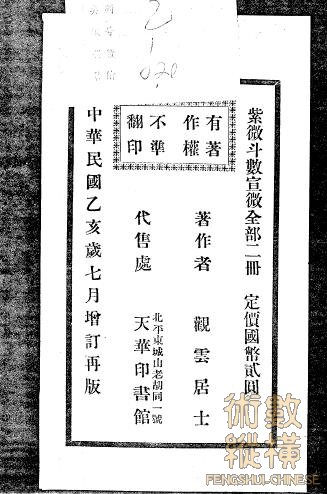 紫微斗數宣微全部二冊　定價國幣貳圓
著作者　觀雲居士
有著
作權
不準
翻印
代售處　天華印書館
北平東城山老胡同一號
中華民國乙亥歲七月增訂再版
術數
縱橫
FENGSHUI-CHINESE